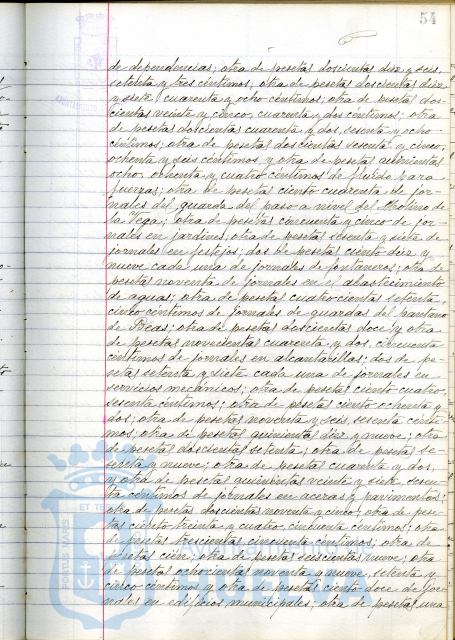 54
de dependencias; otra de pesetas doscientas diez y seis,
setenta y tres céntimos; otra de pesetas doscientas diez
y siete, cuarenta y ocho céntimos; otra de pesetas dos-
cientas veinte y cinco, cuarenta y dos céntimos; otra
de pesetas doscientas cuarenta y dos, sesenta y ocho
céntimos; otra de pesetas doscientas sesenta y cinco,
ochenta y seis céntimos, y otra de pesetas quinientas
ocho, ochenta y cuatro céntimos de fluido para
fuerzas; otra de pesetas ciento cuarenta de jor-
nales del guarda del paso a nivel del Molino de
la Vega; otra de pesetas cincuenta y cinco de jor-
nales en jardines, otra de pesetas sesenta y siete de
jornales en festejos; dos de pesetas ciento diez y
nueve cada una de jornales de fontaneros; otra de
pesetas noventa de jornales en el abastecimiento
de aguas; otra de pesetas cuatrocientas setenta,
cinco céntimos de jornales de guardas del pantano
de Beas; otra de pesetas doscientas doce y otra
de pesetas novecientas cuarenta y dos, cincuenta
céntimos de jornales en alcantarillas; dos de pe-
setas setenta y siete cada una de jornales en
servicios mecánicos; otra de pesetas ciento cuatro,
sesenta céntimos; otra de pesetas ciento ochenta y
dos; otra de pesetas noventa y seis, sesenta cénti-
mos; otra de pesetas quinientas diez y nueve; otra
de pesetas doscientas setenta; otra de pesetas se-
senta y nueve; otra de pesetas cuarenta y dos,
y otra de pesetas quinientas veinte y siete, sesen-
ta céntimos de jornales en aceras y pavimentos;
otra de pesetas doscientas noventa y cinco; otra de pese-
tas ciento treinta y cuatro, cincuenta céntimos; otra
de pesetas trescientas, cincuenta céntimos; otra de
pesetas cien; otra de pesetas seiscientas nueve; otra
de pesetas ochocientas noventa y nueve, setenta y
cinco céntimos y otra de pesetas ciento doce de jor-
nales en edificios municipales; otra de pesetas una